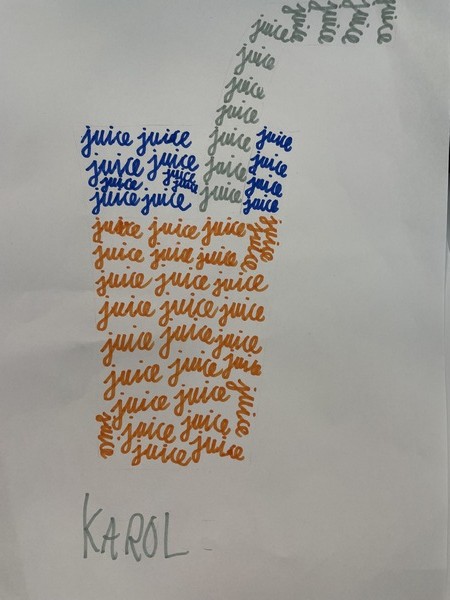 juice juice juice juice
juice juice juice juice juice
juice
juice
juice
juice juice juice juice
juice juice juice juice
juice juice juice juice
juice juice juice juice
juice juice juice juice juice
juice juice juice
juice juice juice
juice juice juice
juice juice juice
juice juice juice
juice juice juice
juice juice
juice juice juice juice
juice juice
KAROL